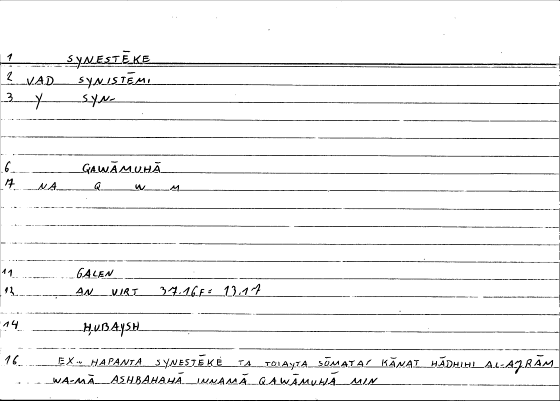 1 SYNESTĒKE
2 VAD SYNISTĒMI
3 Y SYN-
6 QAWĀMUHĀ
17 NA Q W M
11 GALEN
12 AN VIRT 37.16F= 13.17
14 ḤUBAYSH
16 EX- HAPANTA SYNESTĒKE TA TOIAYTA SŌMATA/ KĀNAT HĀDHIHI AL-AJRĀM
WA-MĀ ASHBAHAHĀ INNAMĀ QAWĀMUHĀ MIN